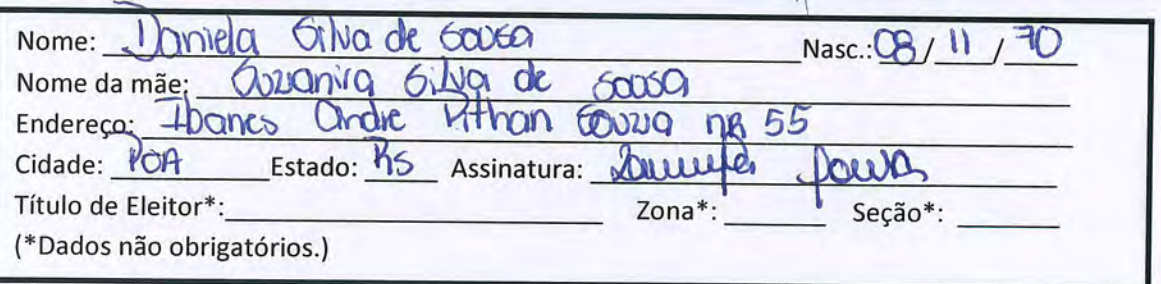 Nome: Daniela Silva de Sousa Nasc.: 08/11/70
Nome da mãe: Suzanira Silva de Sousa
Endereço: Ibanes Andre Pithan Souza nR 55
Cidade: POA Estado: RS Assinatura:
Título de Eleitor*: Zona*: Seção*:
(*Dados não obrigatórios.)